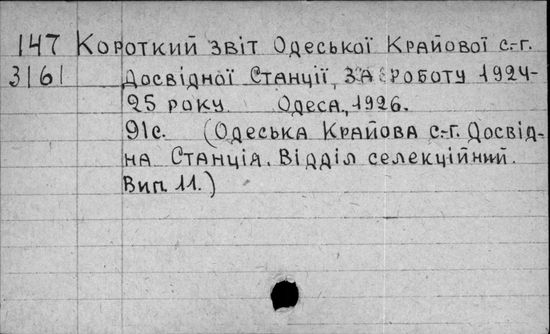 147 Короткий звіт Одеської Крайової с.-г.
3161 Досвідної Станції, за роботу 1924-
25 року. Одеса, 1926.
91с. (Одеська Крайова с.-г. Досвід-
на Станція. Відділ селекційний.
Вип. 11.)